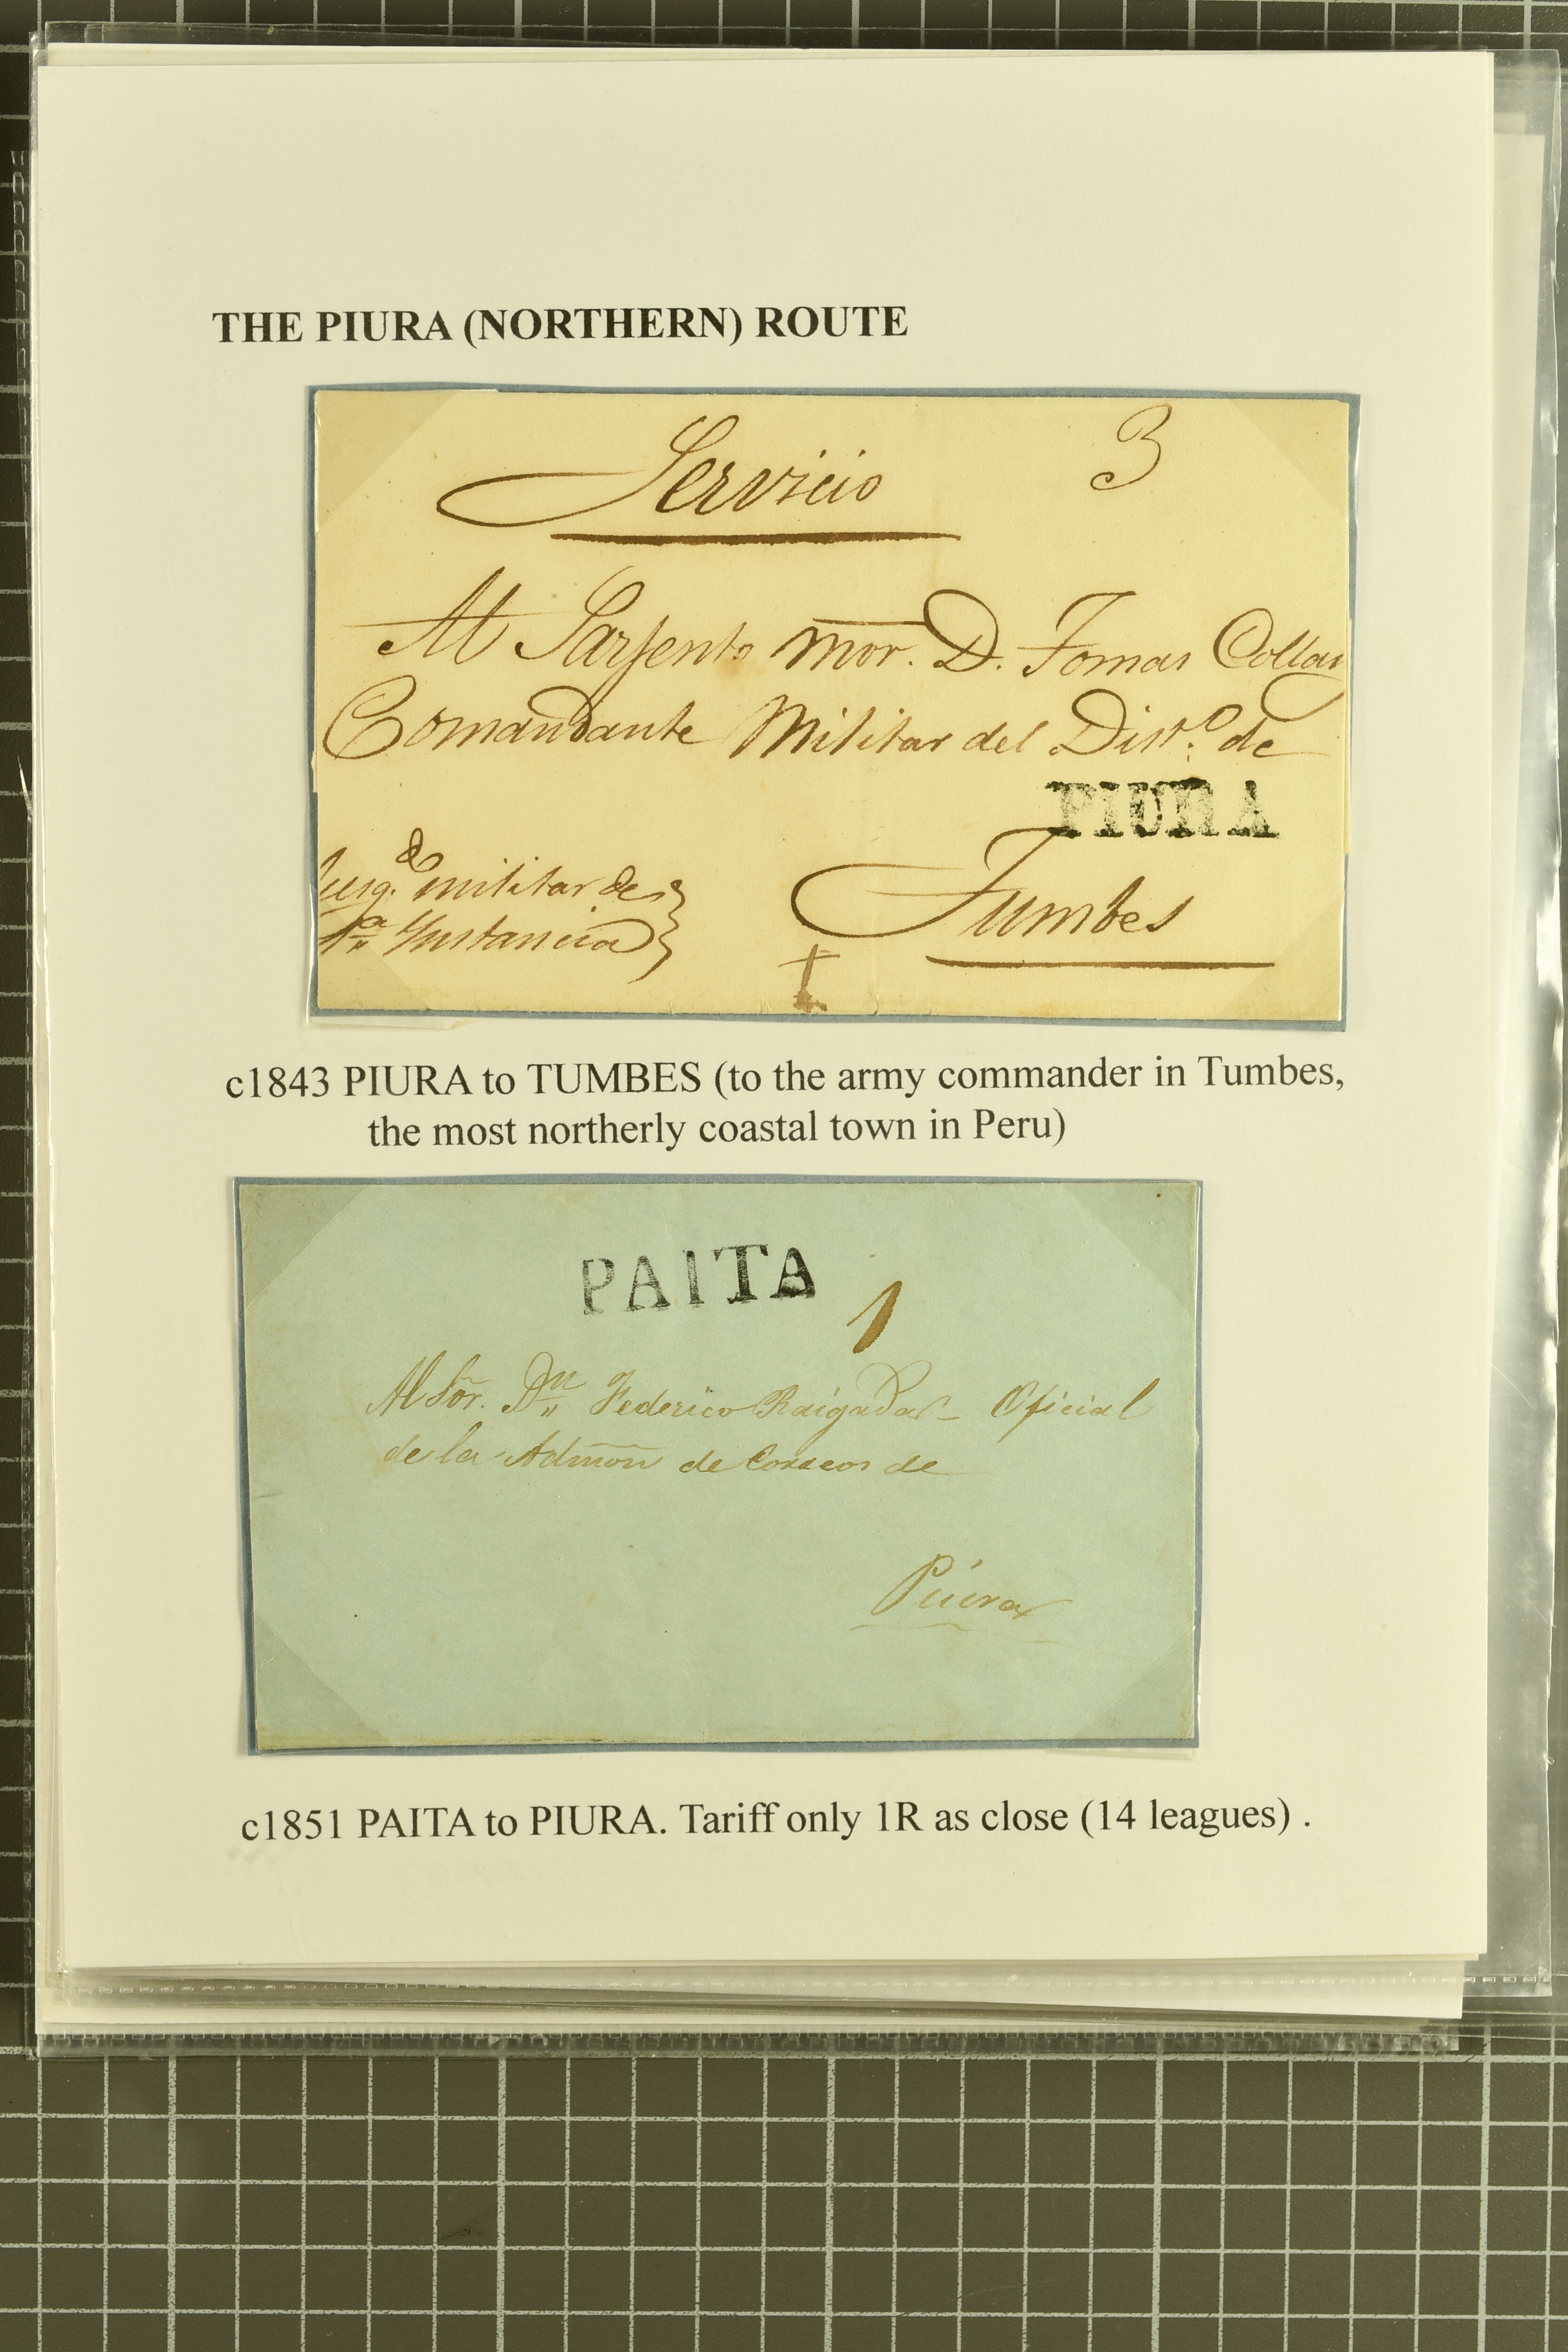 THE PIURA (NORTHERN) ROUTE
Servicio 3
Al Sarjento mor. D. Tomas Collar
Comandante Militar del Dist.º de
PIURA
Jusg.do militar de
1.ª Ynstancia
Tumbes
c1843 PIURA to TUMBES (to the army commander in Tumbes,
the most northerly coastal town in Peru)
PAITA
1
Al Sõr. Dn Federico Raigada Oficial
de la Admõn de Correos de
Piura
c1851 PAITA to PIURA. Tariff only 1R as close (14 leagues) .